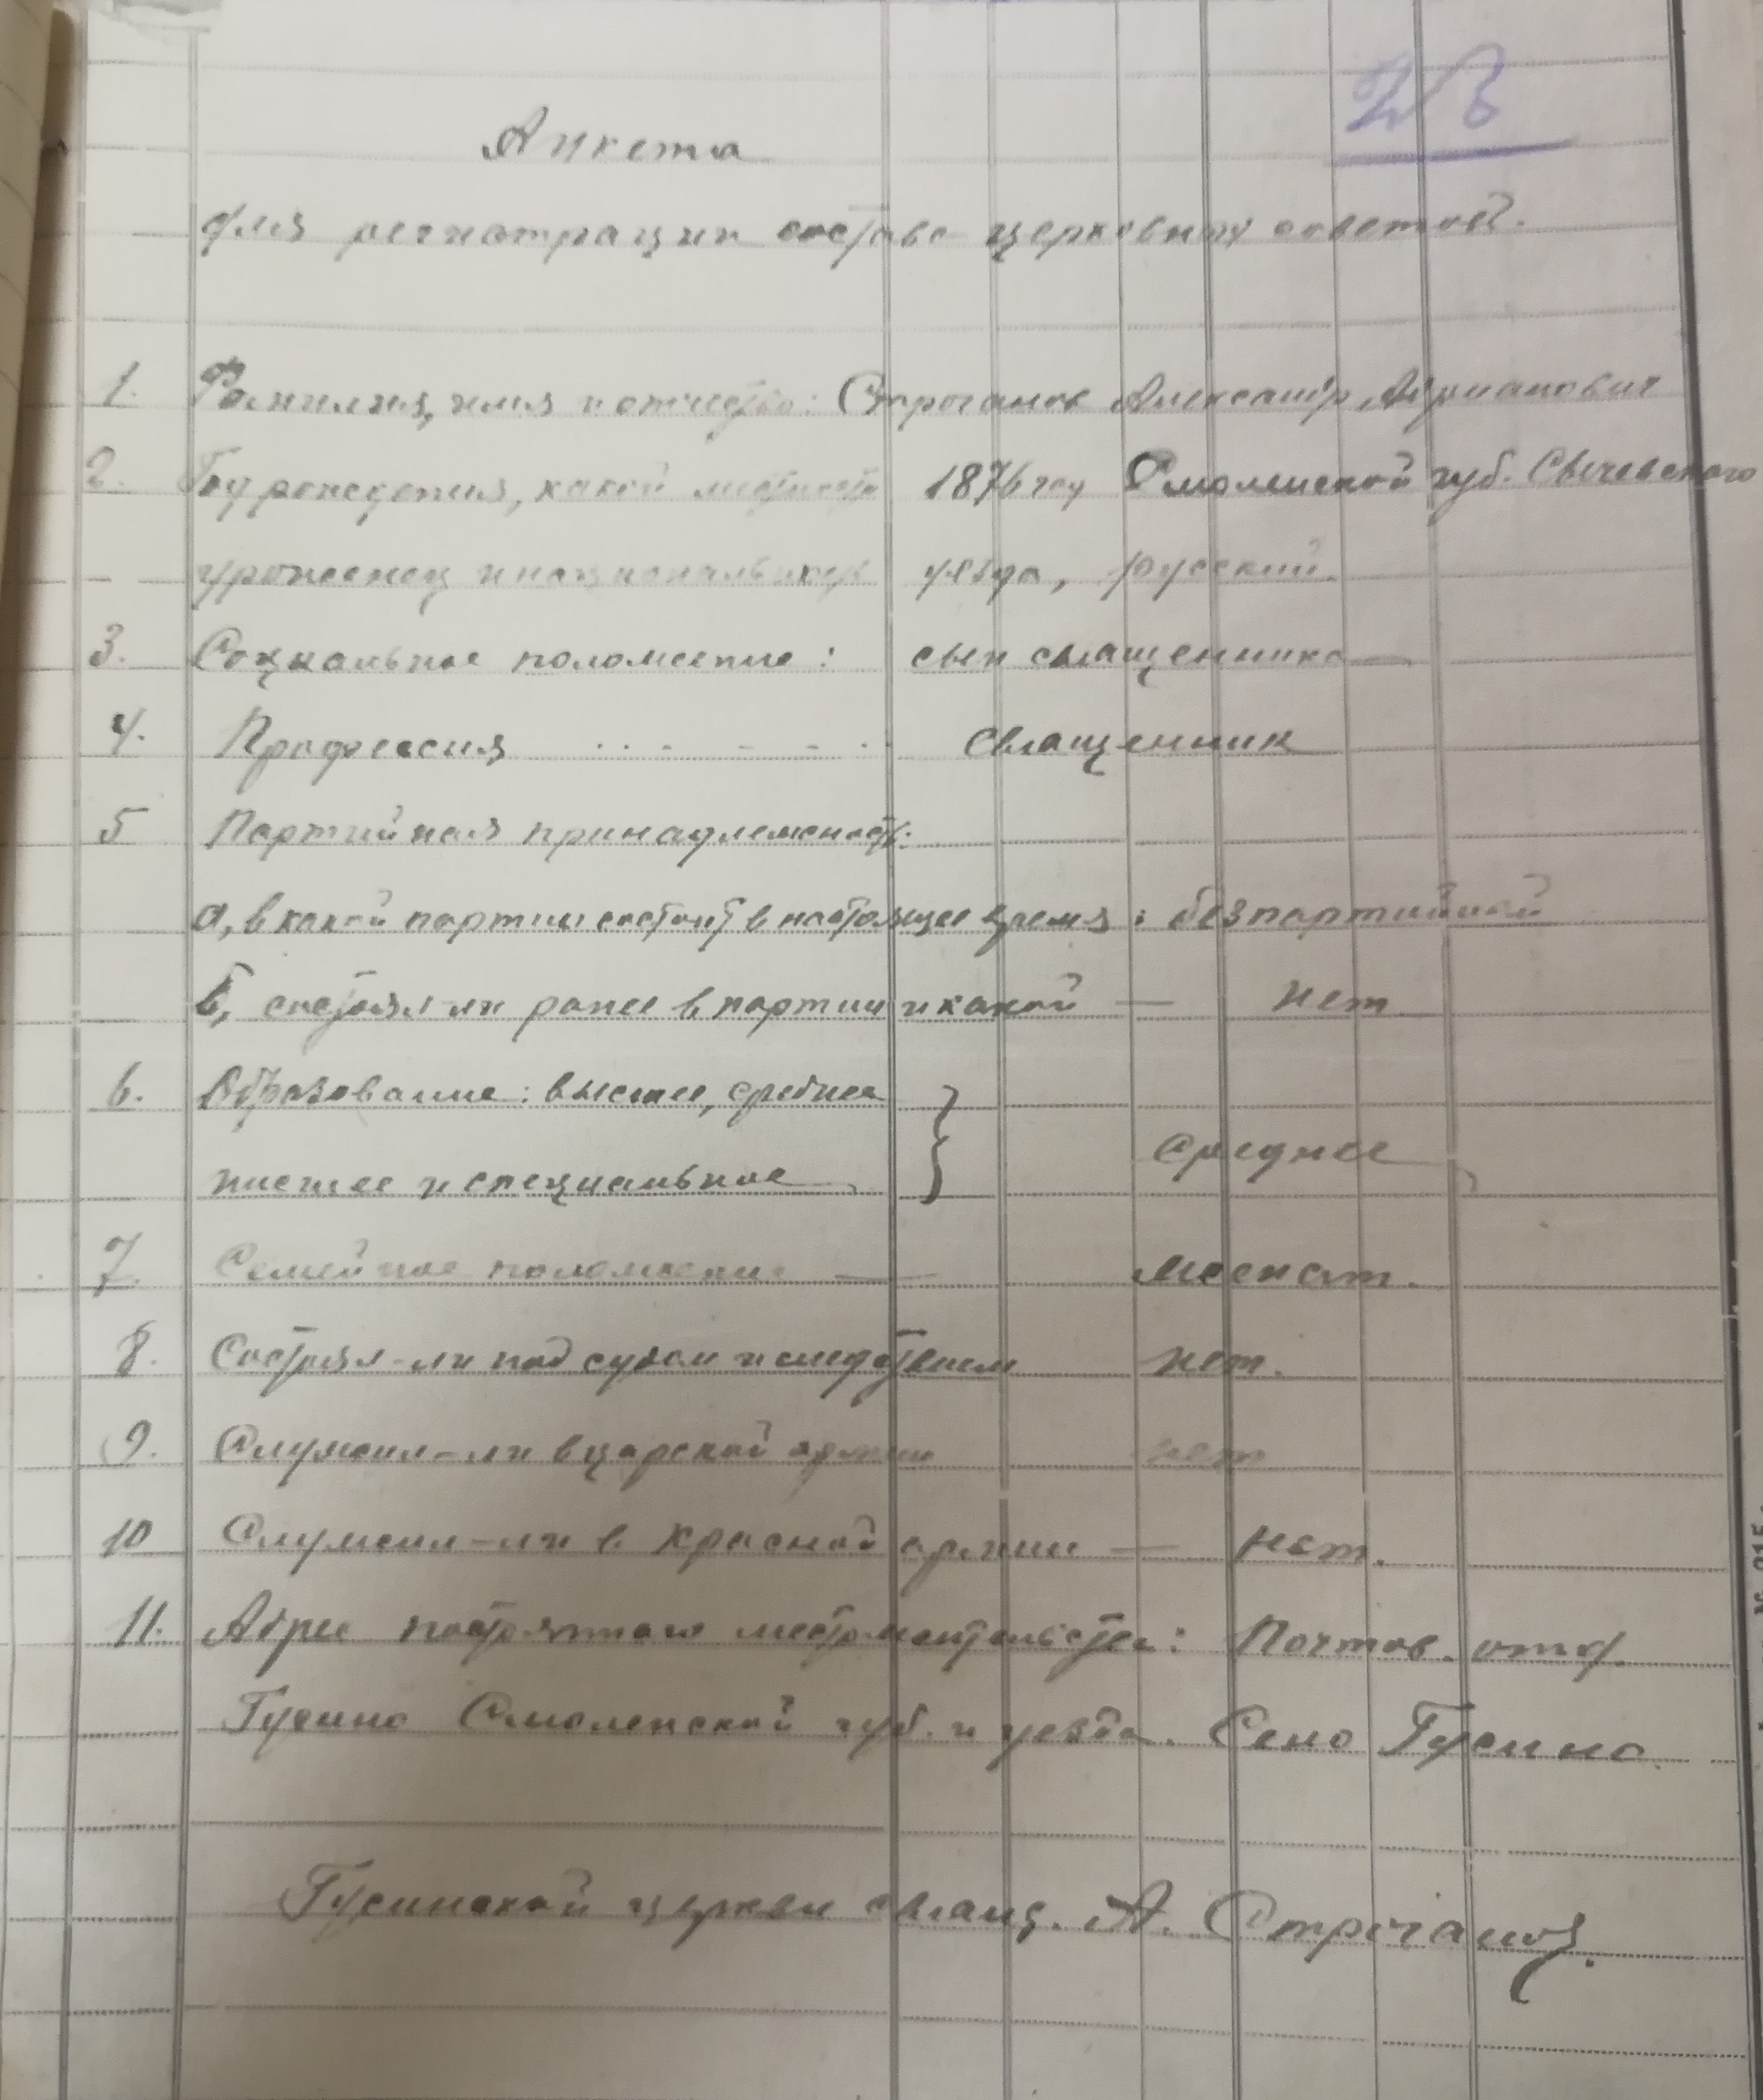 Анкета
для регистрации состава церковных советов.
1. Фамилия, имя и отчество: Строганов Александр Адрианович
2. Год рождения, какой местности 1876 году Смоленской губ. Сычевского
уроженец и национальность уезда, русский.
3. Социальное положение: сын священника
4. Профессия священник
5 Партийная принадлежность:
а, в какой партии состоит в настоящее время: безпартийной
б, состоял-ли ранее в партии и какой — нет
6. Образование: высшее, среднее
низшее и специальное } Среднее
7. Семейное положение — женат.
8. Состоял-ли под судом и следствием нет.
9. Служил-ли в царской армии нет
10 Служил-ли в Красной армии — нет.
11. Адрес постоянного местожительства: Почтов. отд.
Гусино Смоленской губ. и уезда. Село Гусино.
Гусинской церкви свящ. А.